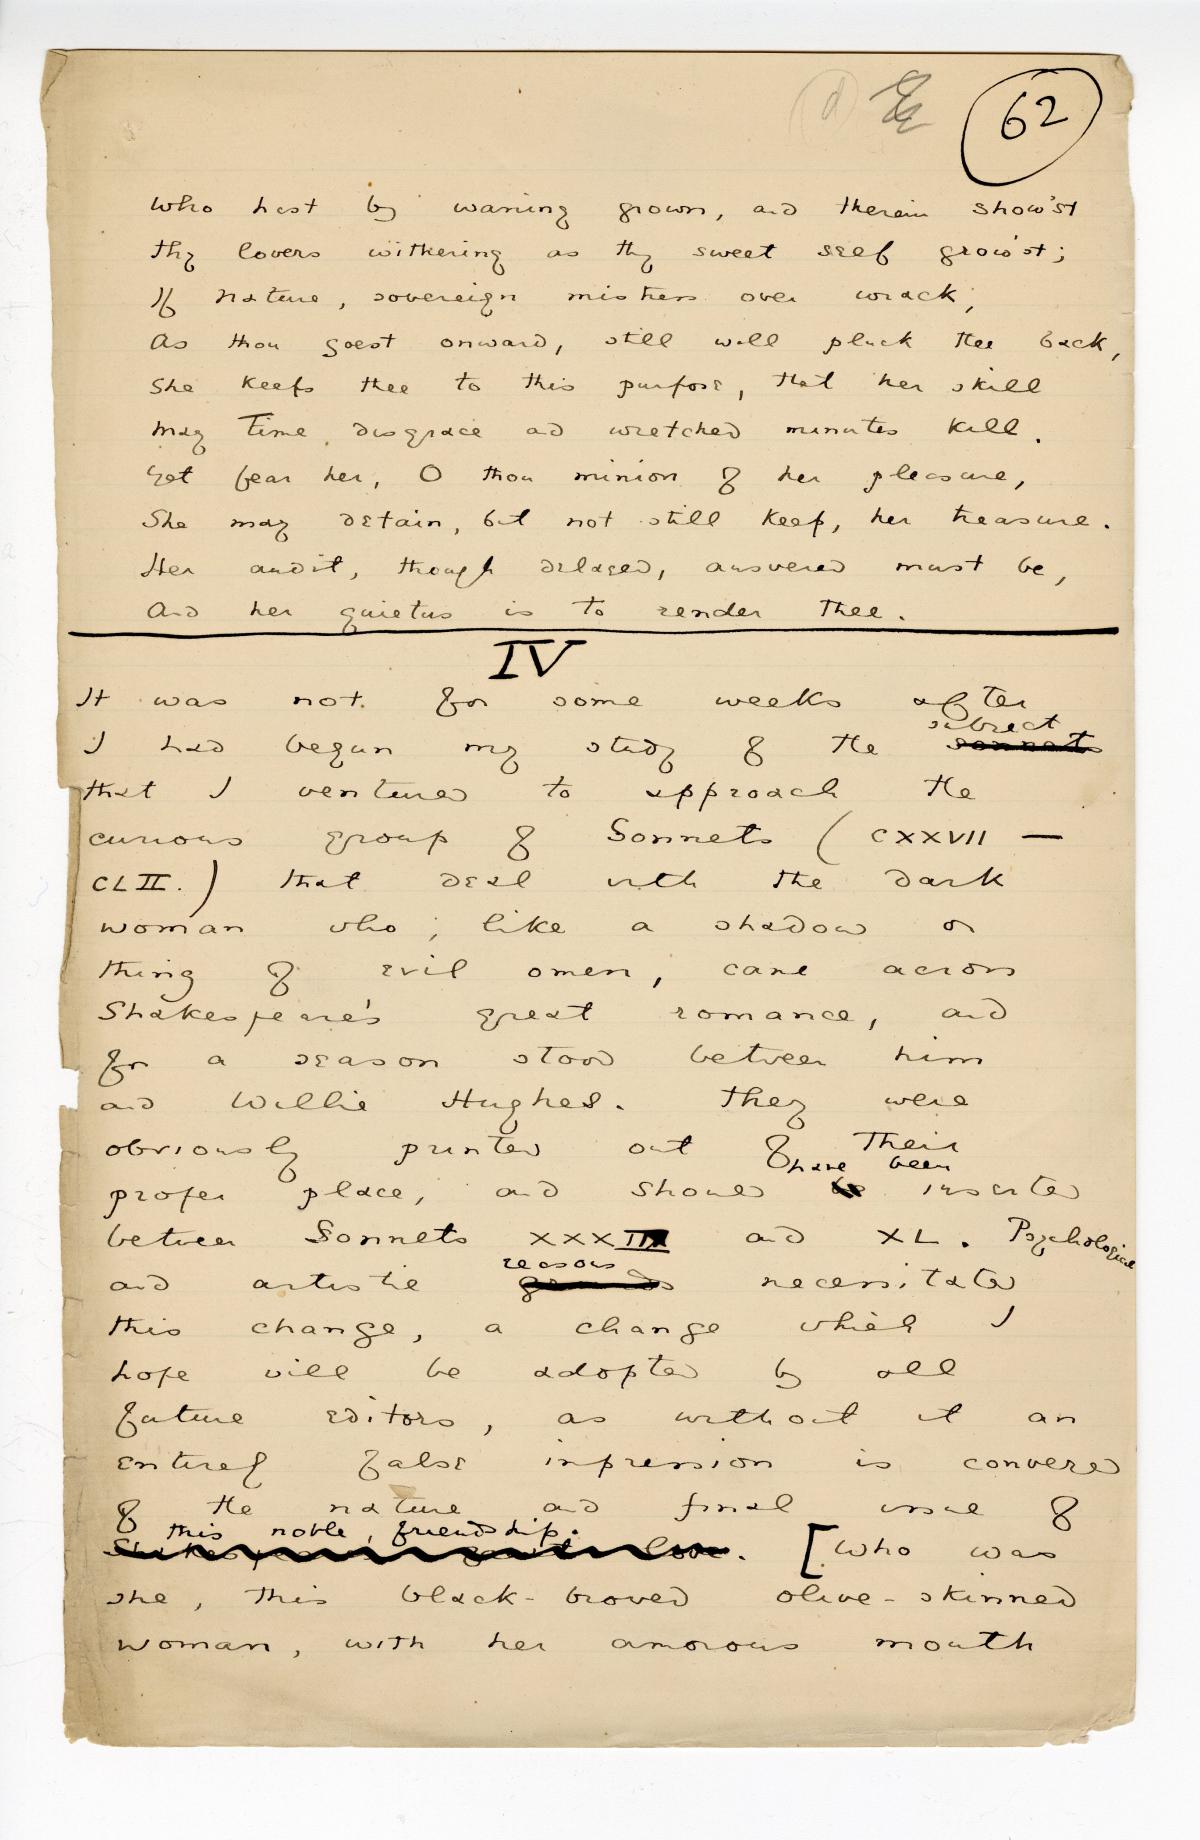 62
Who hast by waning grown, and therein show'st
Thy lovers withering as thy sweet self grow'st;
If nature, sovereign mistress over wrack,
As thou goest onward, still will pluck thee back,
She keeps thee to this purpose, that her skill
may Time disgrace and wretched minutes kill.
Yet fear her, O thou minion of her pleasure,
She may detain, but not still keep, her treasure.
Her audit, though delayed, answered must be,
And her quietus is to render thee.
IV
It was not for some weeks after
subject
I had begun my study of the sonnets
that I ventured to approach the
curious group of Sonnets (CXXVII —
CLII.) that deal with the dark
woman who, like a shadow or
thing of evil omen, came across
Shakespeare's great romance, and
for a season stood between him
and Willie Hughes. They were
obviously printed out of their
have been
proper place, and should be inserted
between Sonnets XXXIII and XL. Psychological
reasons
and artistic grounds necessitated
this change, a change which I
hope will be adopted by all
future editors, as without it an
entirely false impression is conveyed
of the nature and final issue of
this noble friendship.
Shakespeare's love. [Who was
she, this black-browed olive-skinned
woman, with her amorous mouth